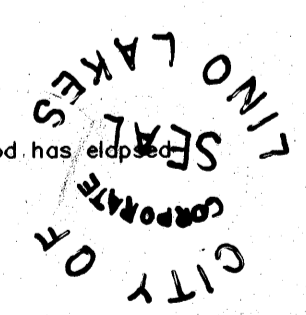 od has elapsed
CITY OF LINO LAKES
CORPORATE
SEAL